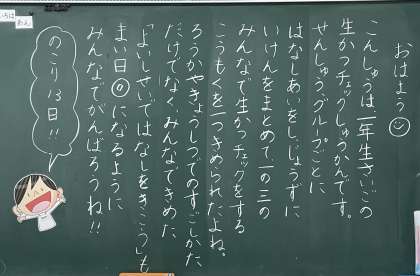 おはよう
こんしゅうは一年生さいごの
生かつチェックしゅうかんです。
せんしゅうグループごとに
はなしあいをしじょうずに
いけんをまとめて一の三の
みんなで生かつチェックをする
こうもくを一つきめられたよね。
ろうかやきょうしつでのすごしかた
だけでなく、みんなできめた
「よいしせいではなしをきこう」も
まい日◎になるように
みんなでがんばろうね!!
のこり13日!!
いろは
わん